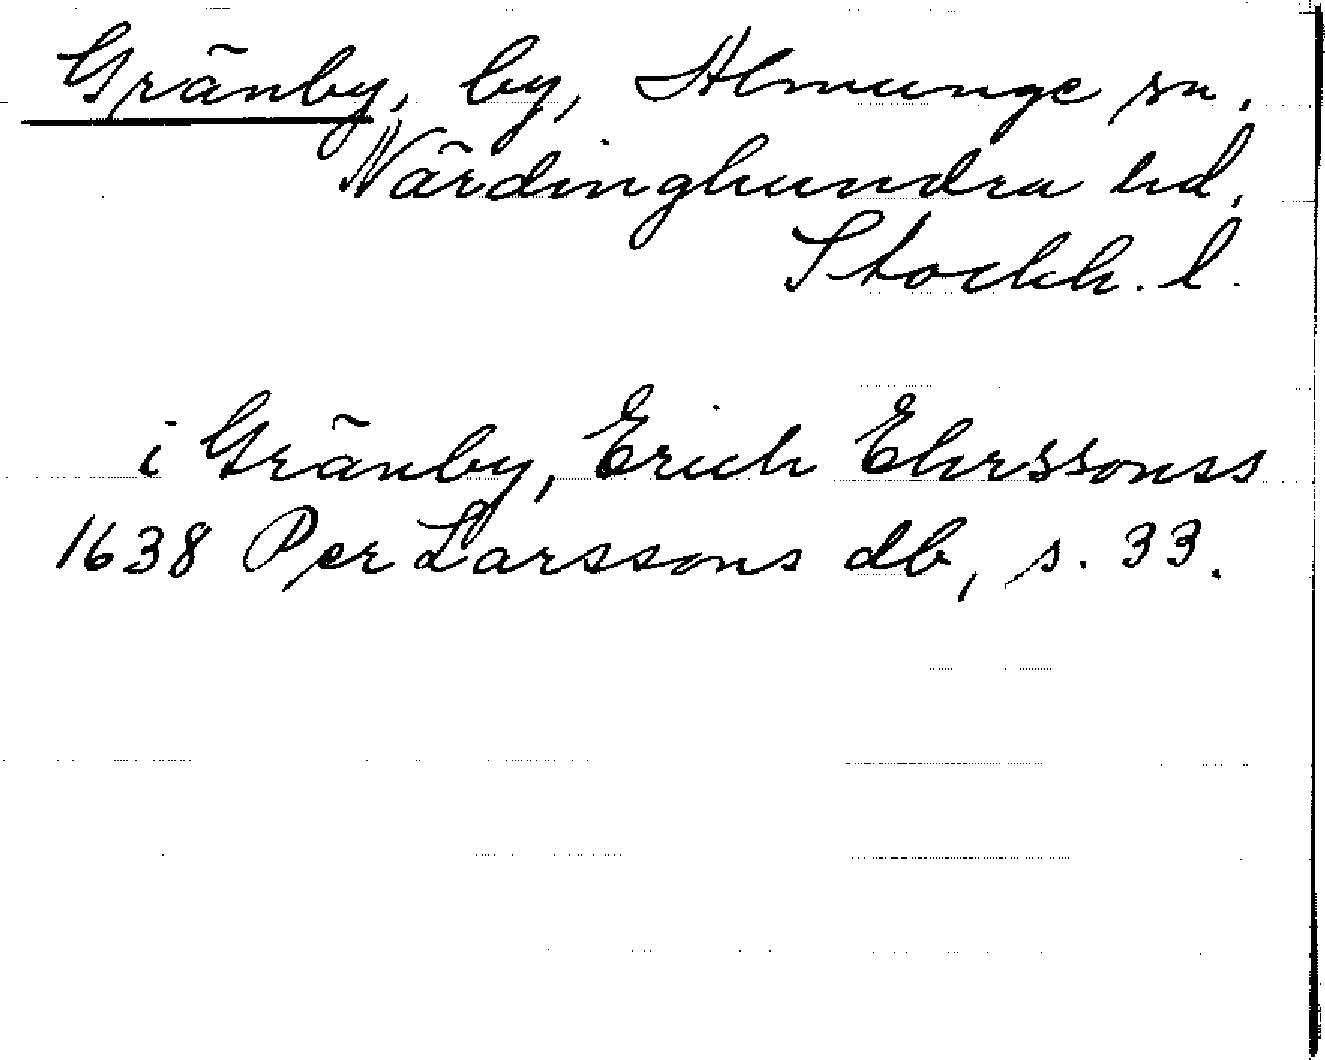 Gränby, by, Almunge sn.
Närdinghundra hd.
Stockh. l.
i Gränby, Erich Ehrssonss
1638 Per Larssons db, s. 33.